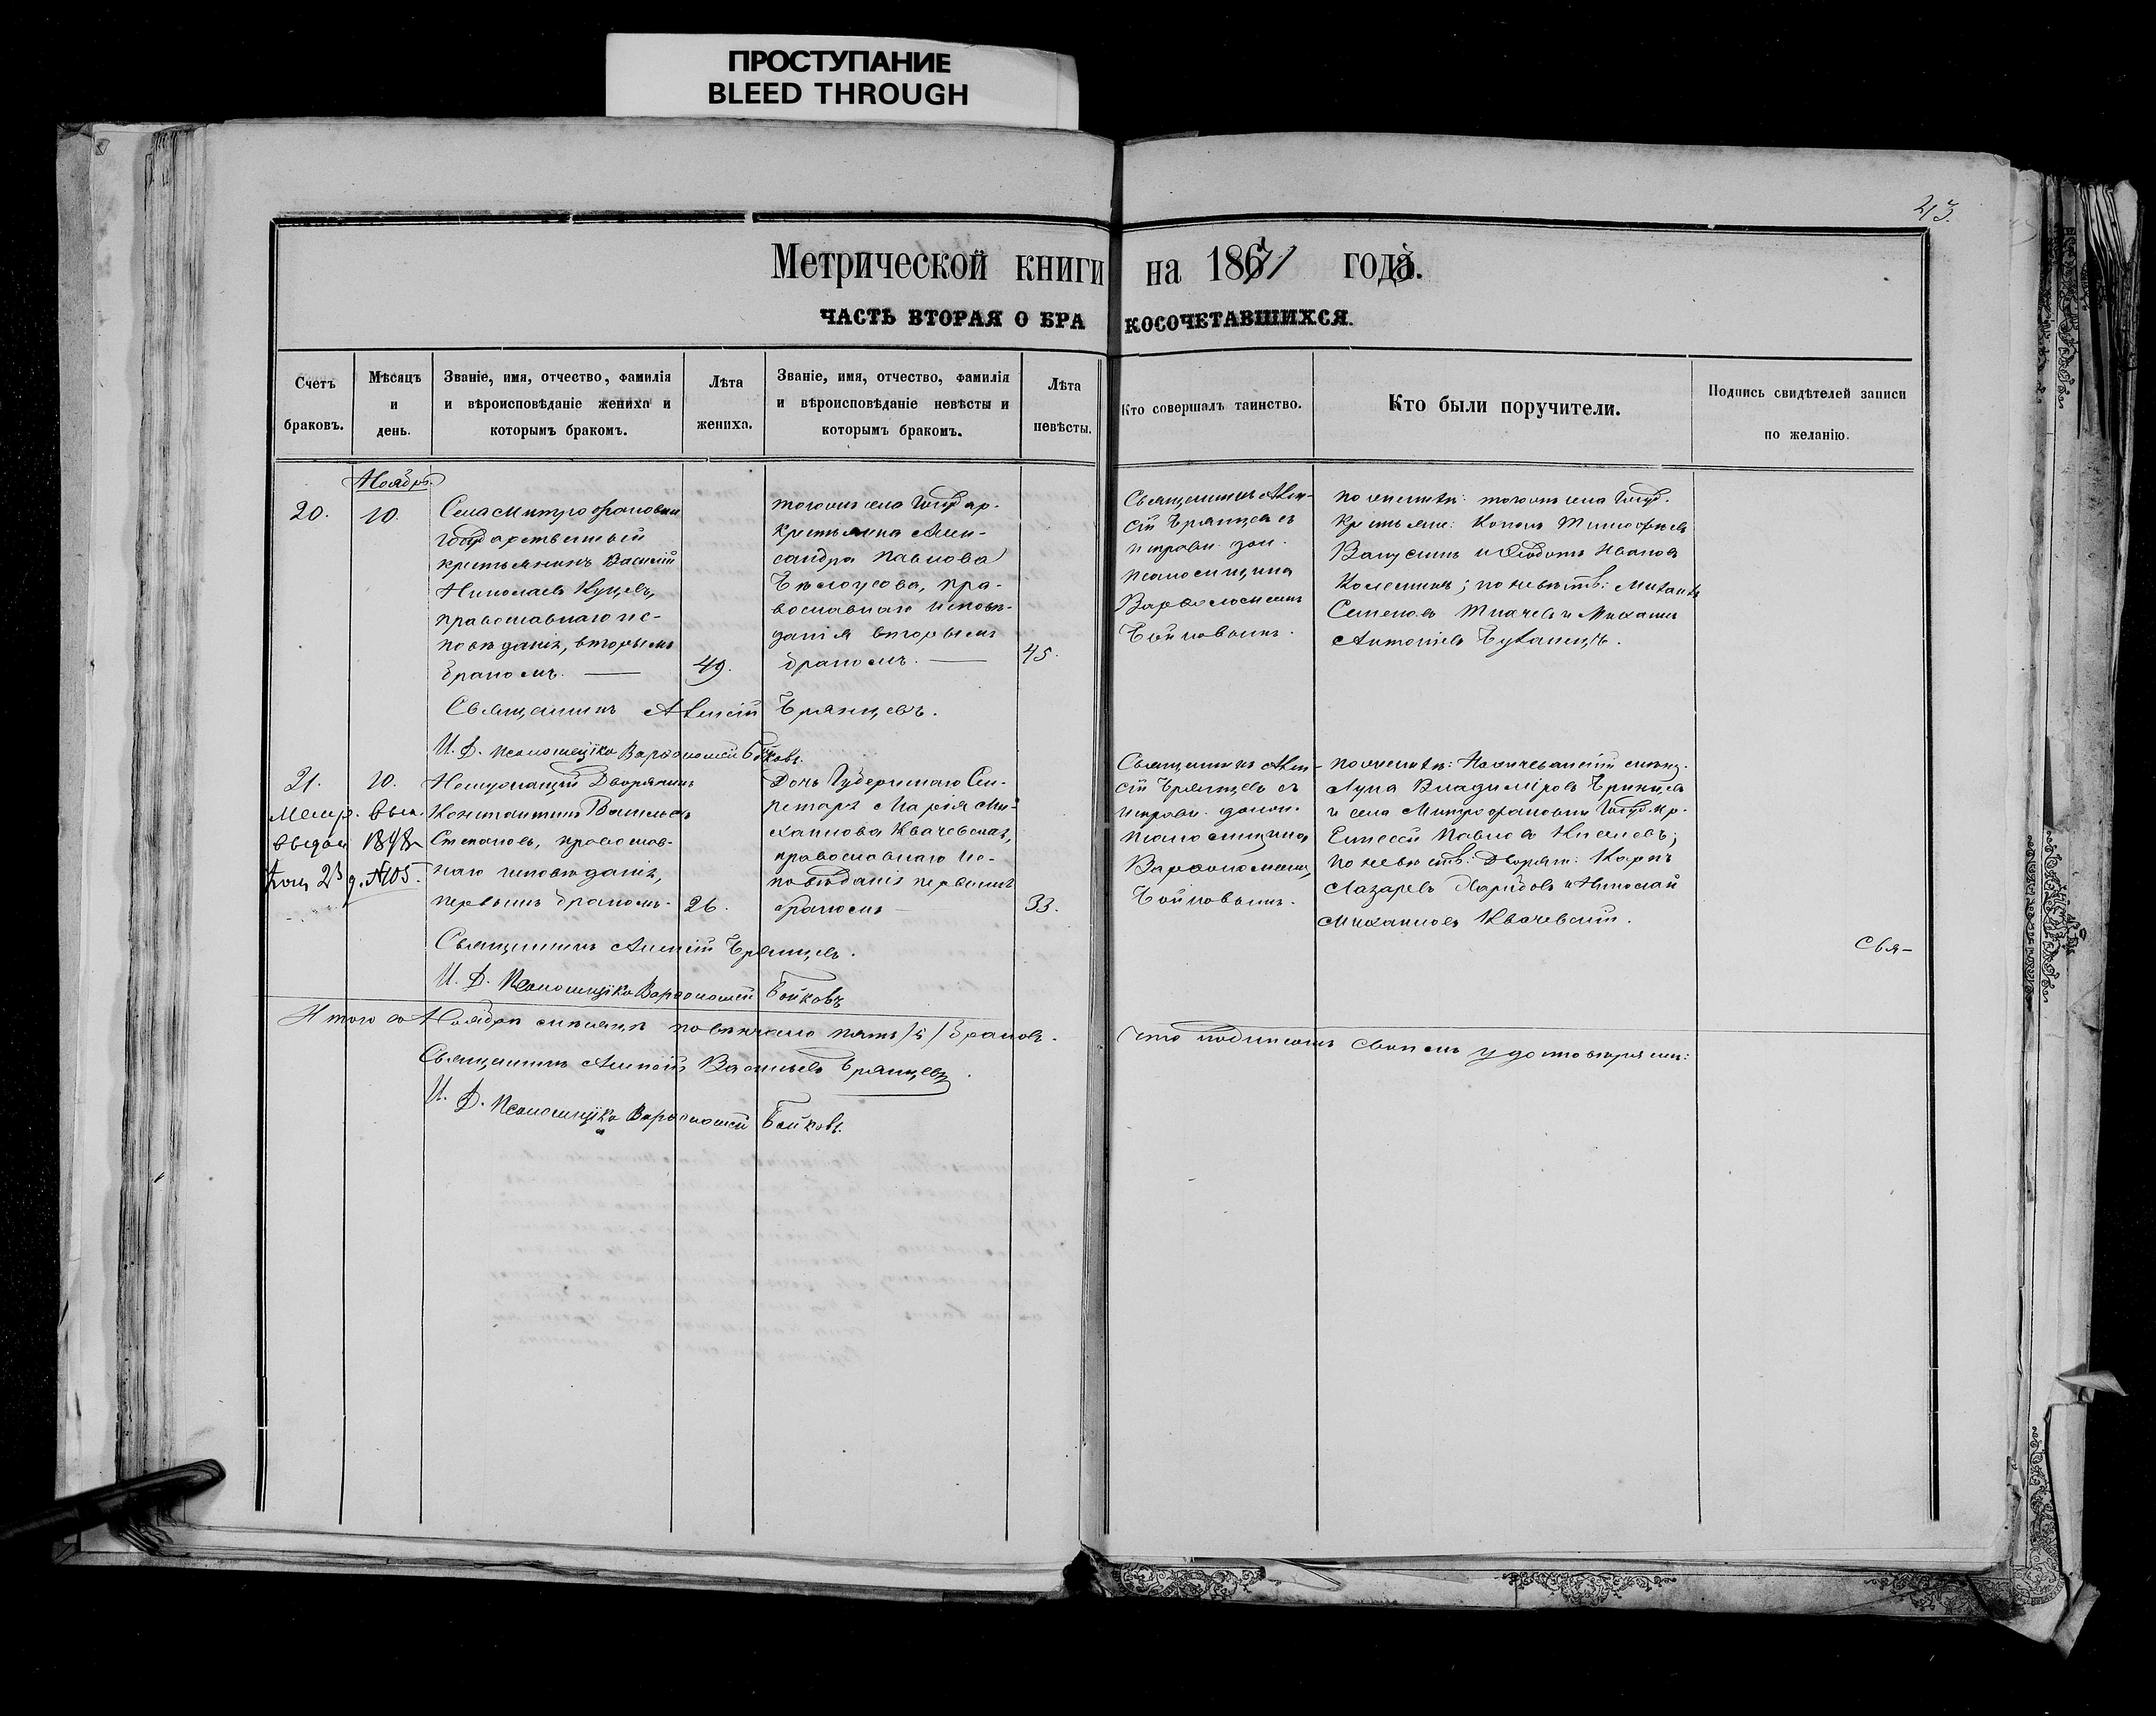 ПРОСТУПАНИЕ
BLEED THROUGH
213.
Метрической книги на 1871 года.
ЧАСТЬ ВТОРАЯ О БРАКОСОЧЕТАВШИХСЯ.
Счетъ браковъ.
Мѣсяцъ и день.
Званіе, имя, отчество, фамилія
и вѣроисповѣданіе жениха и
которымъ бракомъ.
Лѣта жениха.
Званіе, имя, отчество, фамилія
и вѣроисповѣданіе невѣсты и
которымъ бракомъ.
Лѣта невѣсты.
Кто совершалъ таинство.
Кто были поручители.
Подпись свидѣтелей записи
по желанію.
Ноября
20.
10.
Села Митрофановки
государственный
крестьянинъ Василій
Николаевъ Куцевъ,
православнаго ис-
повѣданія, вторымъ
бракомъ.
49.
тогожъ села Государ.
крестьянка Алек-
сандра Павлова
Бѣлоусова, пра-
вославнаго исповѣ-
данія вторымъ
бракомъ.
45.
Священникъ Алек-
сій Брянцевъ съ
исправ. дол.
псаломщика
Варфоломеемъ
Бойковымъ.
по женихѣ: тогожъ села Госуд.
крестьяне: Кононъ Тимофеевъ
и Федотъ Ивановъ
Колесникъ; по невѣстѣ: Михаилъ
Семеновъ Ткачевъ и Михаилъ
Антоніевъ
Священникъ Алексій Брянцевъ.
И. Д. Псаломщика Варфоломей Бойковъ.
21.
10.
Неслужащій Дворянинъ
Константинъ Васильевъ
Степановъ, православ-
наго исповѣданія,
первымъ бракомъ.
26.
Метр. вып.
выдан
№105.
Дочь Губернскаго Сек-
ретаря Марія Ми-
хаилова Квачевская,
православнаго ис-
повѣданія первымъ
бракомъ
33.
Священникъ Алек-
сій Брянцевъ съ
исправ. должн.
псаломщика
Варфоломеемъ
Бойковымъ.
по женихѣ:
Лука Владиміровъ
и села Митрофановки Госуд. кр.
Елисей Павловъ Киселевъ;
по невѣстѣ: Дворян: Карпъ
Лазаревъ и Николай
Михаиловъ Квачевскій.
Священникъ Алексій Брянцевъ.
И. Д. Псаломщика Варфоломей Бойковъ
Свя-
Итого въ Ноябрѣ мѣсяцѣ повѣнчано пять /5/ браковъ.
Что подписомъ своимъ удостовѣряемъ:
Священникъ Алексій Васильевъ Брянцевъ.
И. Д. Псаломщика Варфоломей Бойковъ.